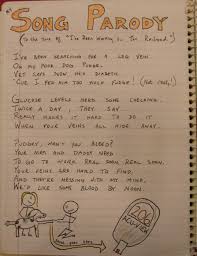 "SONG PARODY"
(TO THE TUNE OF "I'VE BEEN WORKING ON THE RAILROAD")
I'VE BEEN SEARCHING FOR A LEG VEIN
ON MY POOR DOG PUDGE.
VET SAYS NOW HE'S DIABETIC
CUZ I FED HIM TOO MUCH FUDGE! (NOT COOL!)
GLUCOSE LEVELS NEED SOME CHECKING
TWICE A DAY, THEY SAY.
REALLY MAKES IT HARD TO DO IT
WHEN YOUR VEINS ALL HIDE AWAY.
PUDGEY, WON'T YOU BLEED?
YOUR MOM AND DADDY NEED
TO GO TO WORK REAL SOON, REAL SOON.
YOUR VEINS ARE HARD TO FIND,
AND THEY'RE MESSING WITH MY MIND,
WE'D LIKE SOME BLOOD BY NOON.
206